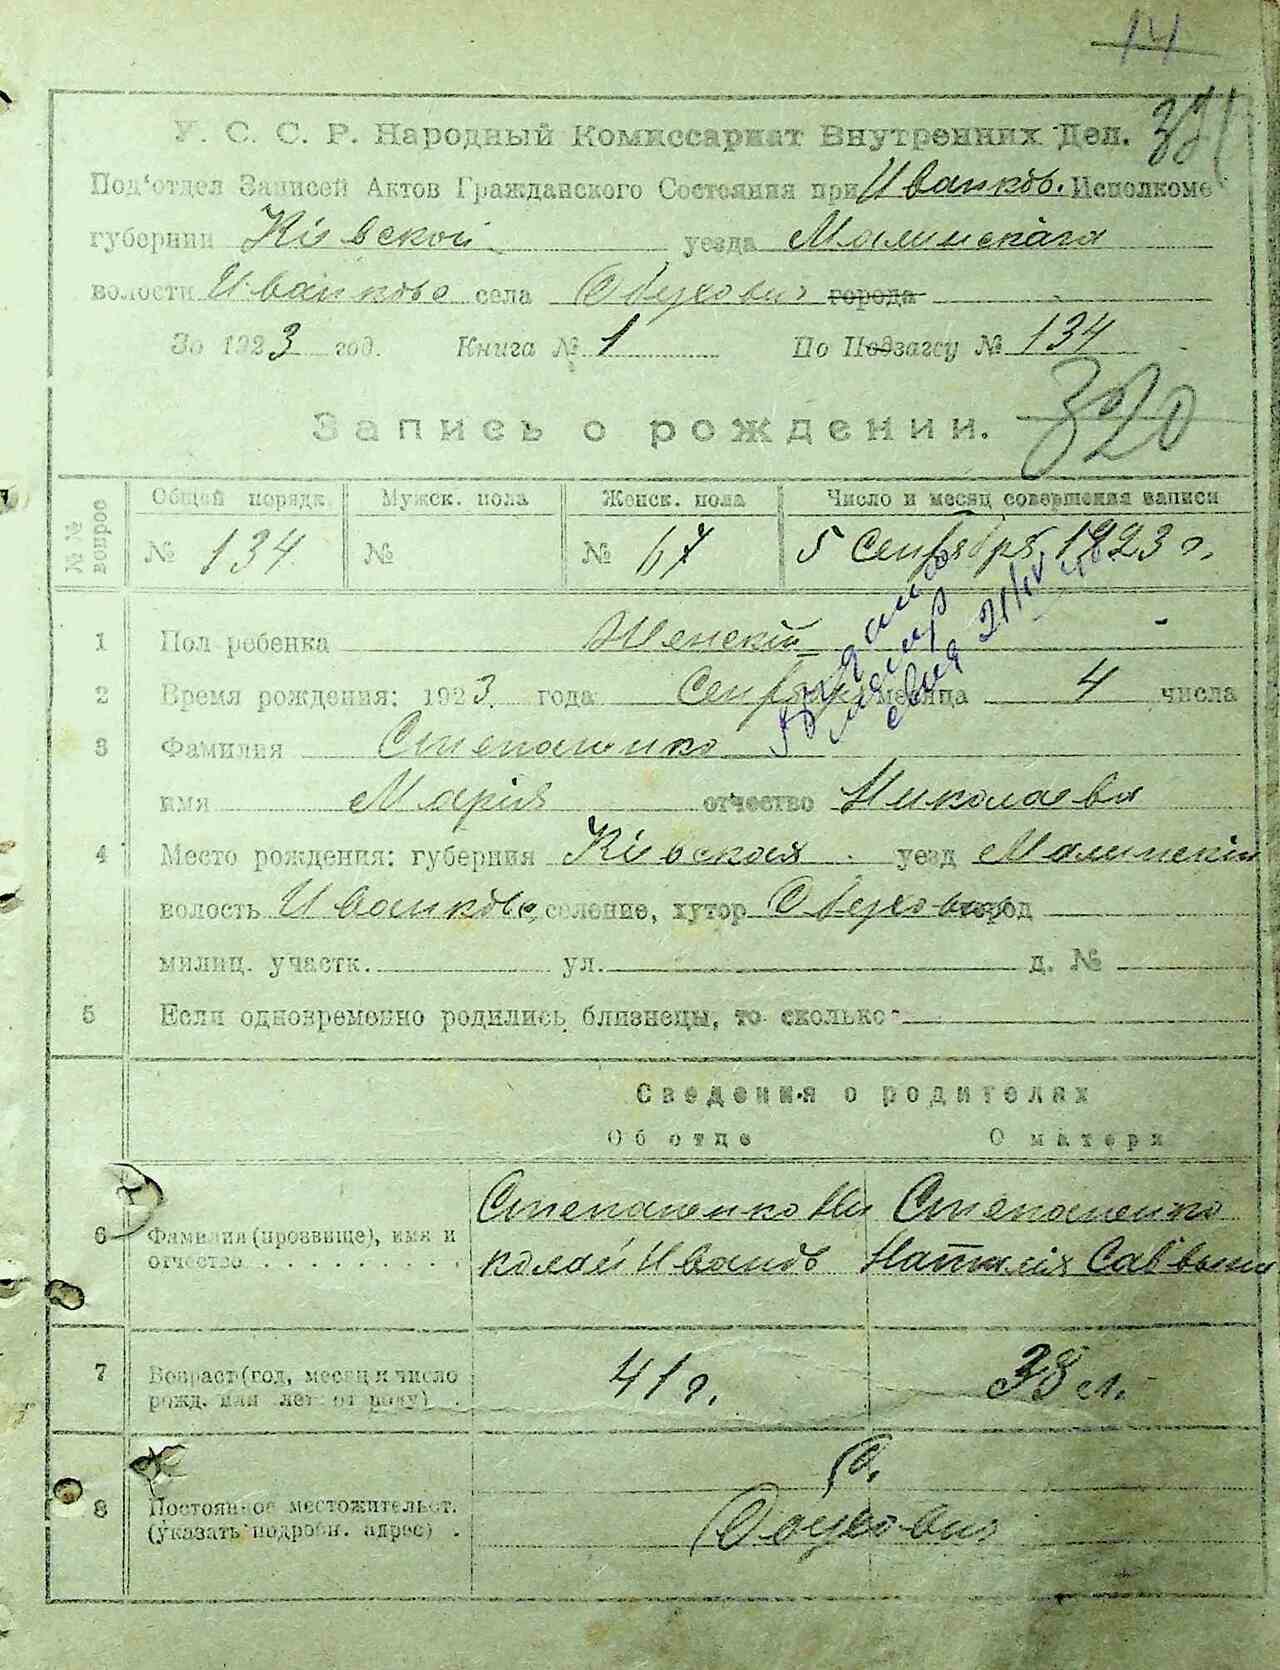 14
321
У. С. С. Р. Народный Комиссариат Внутренних Дел.
Под'отдел Записей Актов Гражданского Состояния при Иванков. Исполкоме
губернии Кіевской уезда Малинскаго
волости Иванково села Обуховичи города
За 1923 год. Книга № 1 По Подзагсу № 134
Запись о рождении. 320
№№ вопрос Общей порядк. Мужск. пола Женск. пола Число и месяц совершения записи
№ 134 № № 67 5 Сентября 1923 г.
1 Пол ребенка Женскій
2 Время рождения: 1923 года Сентября месяца 4 числа
3 Фамилия Степаненко
имя Марія отчество Николаевна
4 Место рождения: губерния Кіевская уезд Малинскій
волость Иванково селение, хутор Обуховичи город
милиц. участк. ул. д. №
5 Если одновременно родились близнецы, то сколько
Сведения о родителях
Об отце О матери
6 Фамилия (прозвище), имя и отчество Степаненко Ни Степаненко
колай Иванов Наталія Саввына
7 Возраст (год, месяц и число рожд. или лет от роду) 41 г. 38 л.
8 Постоянное местожительст. (указать подробн. адрес) с.
Обуховичи